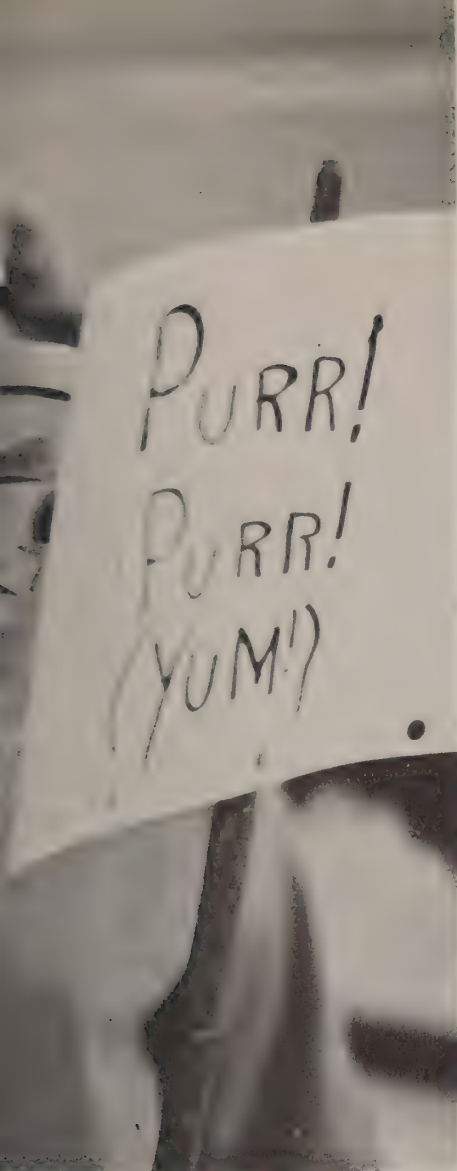 PURR!
PURR!
(YUM!)